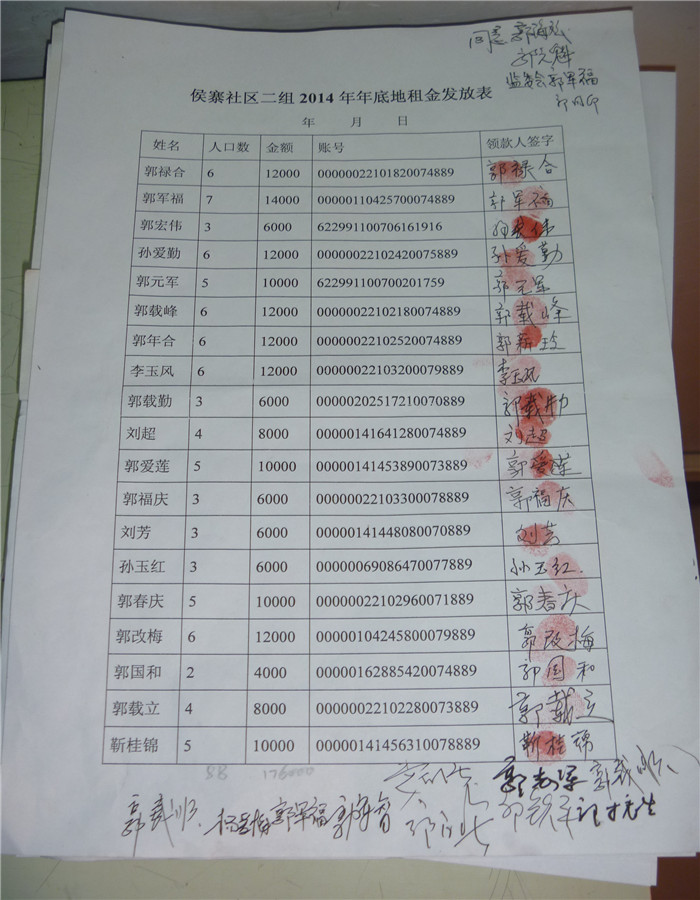 同意
监委会郭军福
侯寨社区二组2014年年底地租金发放表
年 月 日
姓名 人口数 金额 账号 领款人签字
郭禄合 6 12000 00000022101820074889 郭禄合
郭军福 7 14000 00000110425700074889 郭军福
郭宏伟 3 6000 622991100706161916 郭宏伟
孙爱勤 6 12000 00000022102420075889 孙爱勤
郭元军 5 10000 622991100700201759 郭元军
郭载峰 6 12000 00000022102180074889 郭载峰
郭年合 6 12000 00000022102520074889
李玉风 6 12000 00000022103200079889 李玉风
郭载勤 3 6000 00000202517210070889 郭载勤
刘超 4 8000 00000141641280074889 刘超
郭爱莲 5 10000 00000141453890073889 郭爱莲
郭福庆 3 6000 00000022103300078889 郭福庆
刘芳 3 6000 00000141448080070889 刘芳
孙玉红 3 6000 00000069086470077889 孙玉红
郭春庆 5 10000 00000022102960071889 郭春庆
郭改梅 6 12000 00000104245800079889 郭改梅
郭国和 2 4000 00000162885420074889 郭国和
郭载立 4 8000 00000022102280073889 郭载立
靳桂锦 5 10000 00000141456310078889 靳桂锦
88 176000
郭军福